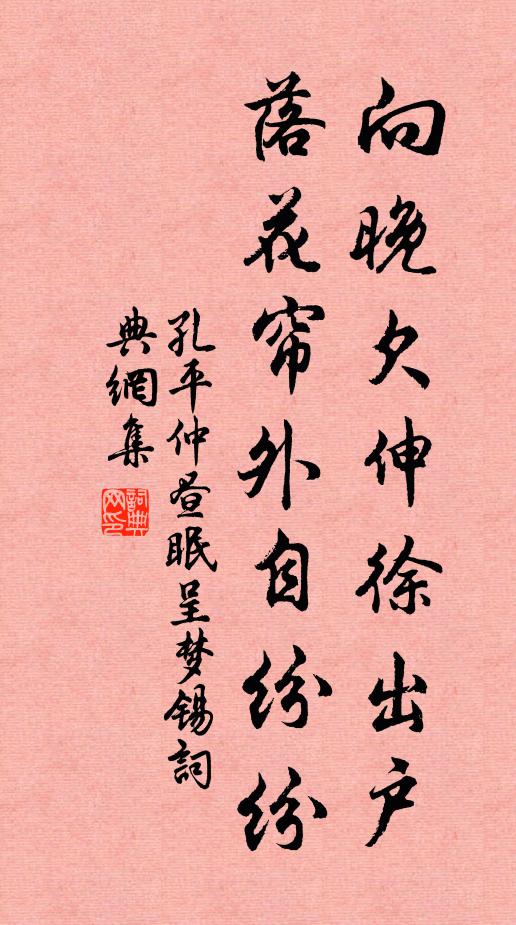 向晚欠伸徐出户
落花帘外自纷纷
孔平仲昼眠呈梦锡詞
典網集
詞典网印